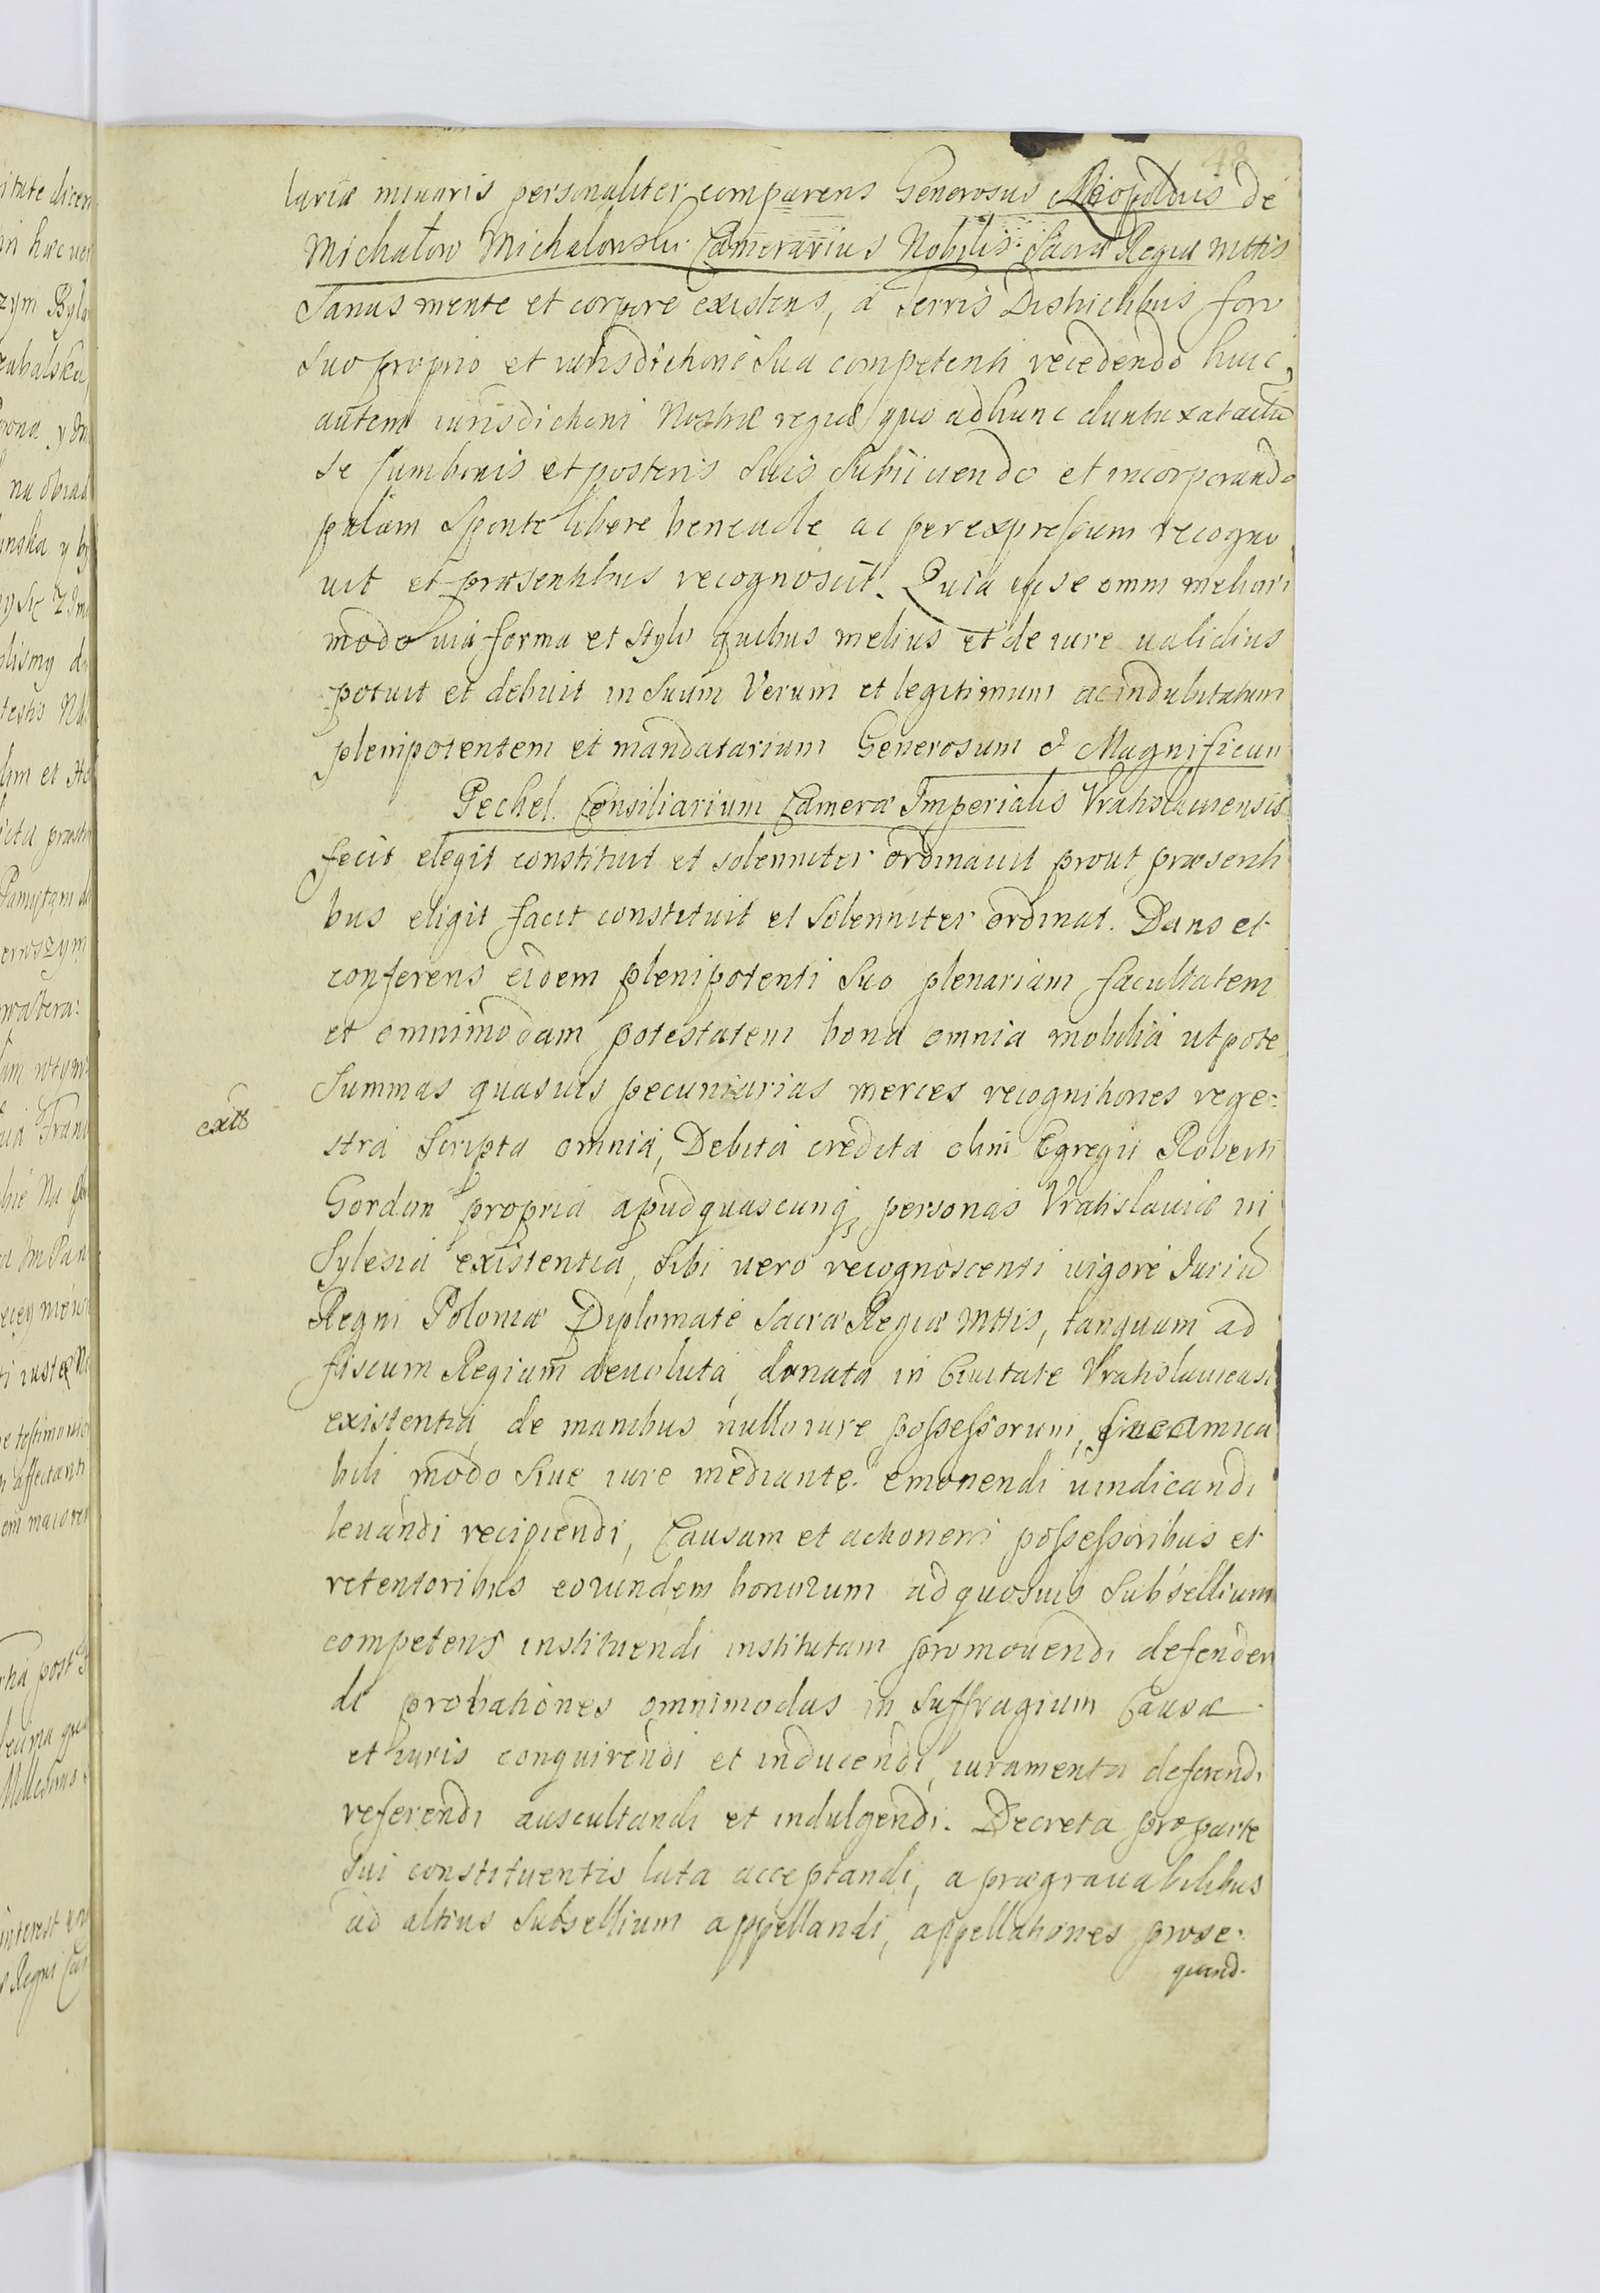 48
lariæ minoris personaliter comparens Generosus Neopoldus de
Michałow Michalowski Camerarius Nobilis Sacræ Regiæ Mttis
Sanus mente et corpore existens, á Terris Districtibus foro
suo proprio et iurisdictione sua competenti recedendo huic
autem iurisdictioni Nostræ regiæ quo ad hunc duntaxat actū
se cum bonis et posteris suis subiiciendo et incorporando
palam sponte libere beneuole ac per expressum recogno
uit et præsentibus recognoscit. Quia ipse omni meliori
modo uia forma et stylo quibus melius et de iure ualidius
potuit et debuit in suum Verum et legitimum ac indubitatum
plenipotentem et mandatarium Generosum & Magnificum
Pechel Consiliarium Cameræ Imperialis Vratislauiensis
fecit elegit constituit et solenniter ordinauit prout præsenti
bus eligit facit constituit et solenniter ordinat. Dans et
conferens eidem plenipotenti suo plenariam facultatem
et omnimodam potestatem bona omnia mobilia utpote
summas quasuis pecuniarias merces recognitiones rege:
stra scripta omnia, Debita credita olim Egregii Roberti
Gordon propria apud quascunq personas Vratislauiæ in
Sylesia existentia, sibi uero recognoscenti uigore Juriū
Regni Poloniæ Diplomate Sacræ Regiæ Mttis, tanquam ad
fiscum Regium deuoluta, donata in Ciuitate Vratislauiensi
existentia de manibus nullo iure possessorum, siue amica
bili modo siue iure mediante emonendi uindicandi
leuandi recipiendi, Causam et actionem possessoribus et
retentoribus eorundem bonorum ad quosuis subsellium
competens instituendi institutam promouendi defenden
di probationes omnimodas in suffragium Causæ
et iuris conquirendi et inducendi, iuramenta deferendi
referendi auscultandi et indulgendi. Decreta pro parte
sui constituentis lata acceptandi, a prægrauabilibus
ad altius subsellium appellandi, appellationes prose:
quend.